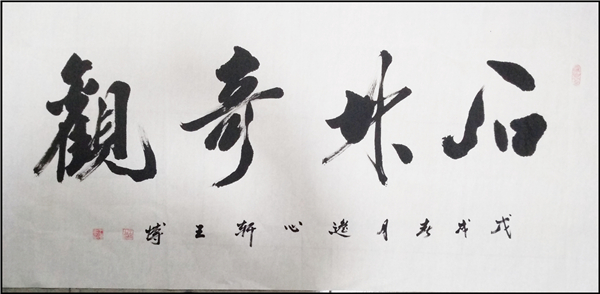 石林奇觀
戊戌春月逸心軒王博